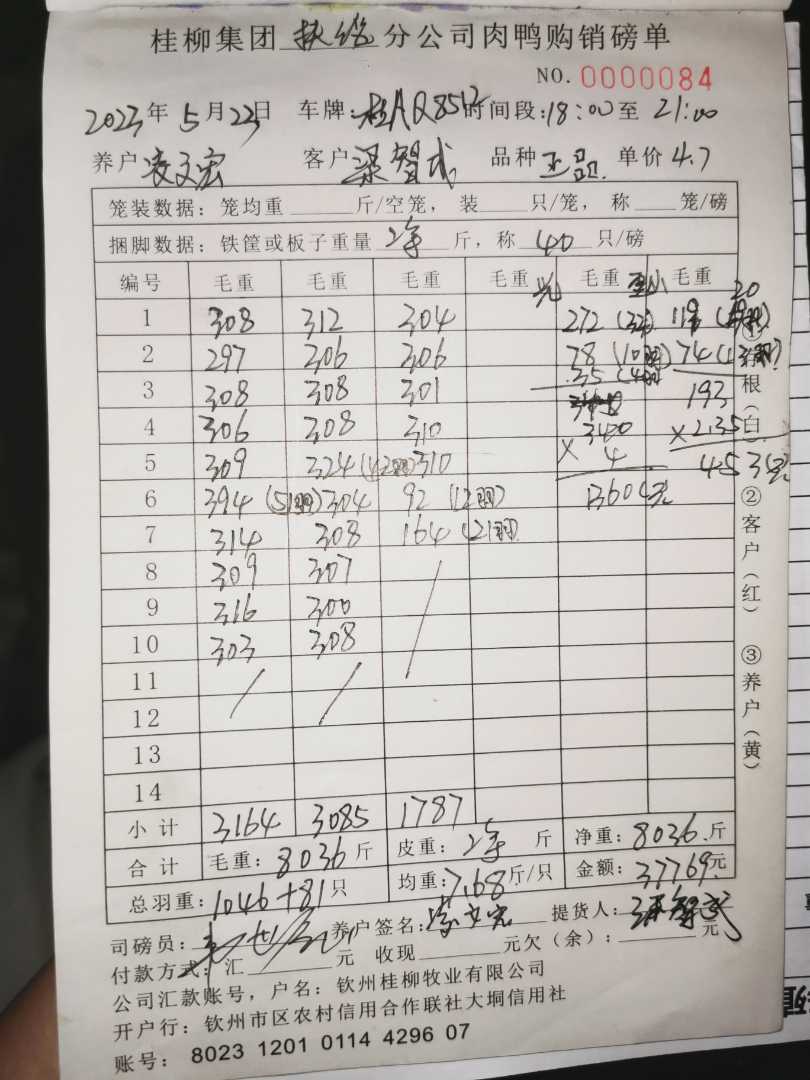 桂柳集团 扶绥 分公司肉鸭购销磅单
NO. 0000084
2023年5月23日 车牌: 桂A Q85 时间段:18:00至21:00
养户 凌文宏 客户 梁智武 品种 正品 单价4.7
笼装数据: 笼均重 斤/空笼, 装 只/笼, 称 笼/磅
捆脚数据: 铁筐或板子重量 斤, 称 40 只/磅
编号 毛重 毛重 毛重 毛重 毛重 小 毛重 20
1 308 312 304 272 ( 119 (
2 297 306 306 78 (10羽) 74 (13羽)
3 308 308 301 35 (4羽) 193
4 306 308 310 340 ×2.35
5 309 324 (42羽) 310 ×4 453元
6 394 (51羽) 304 92 (12羽) 1360元
7 314 308 164 (21羽)
8 309 307
9 316 300
10 303 308
11
12
13
14
小计 3164 3085 1787
合计 毛重: 8036 斤 皮重: 斤 净重: 8036 斤
总羽重: 1046+81 只 均重: 7.68 斤/只 金额: 37769 元
司磅员: 养户签名: 凌文宏 提货人: 梁智武
付款方式: 汇 元 收现 元欠(余): 元
公司汇款账号, 户名: 钦州桂柳牧业有限公司
开户行: 钦州市区农村信用合作联社大垌信用社
账号: 8023 1201 0114 4296 07
①存根(白) ②客户(红) ③养户(黄)
殖